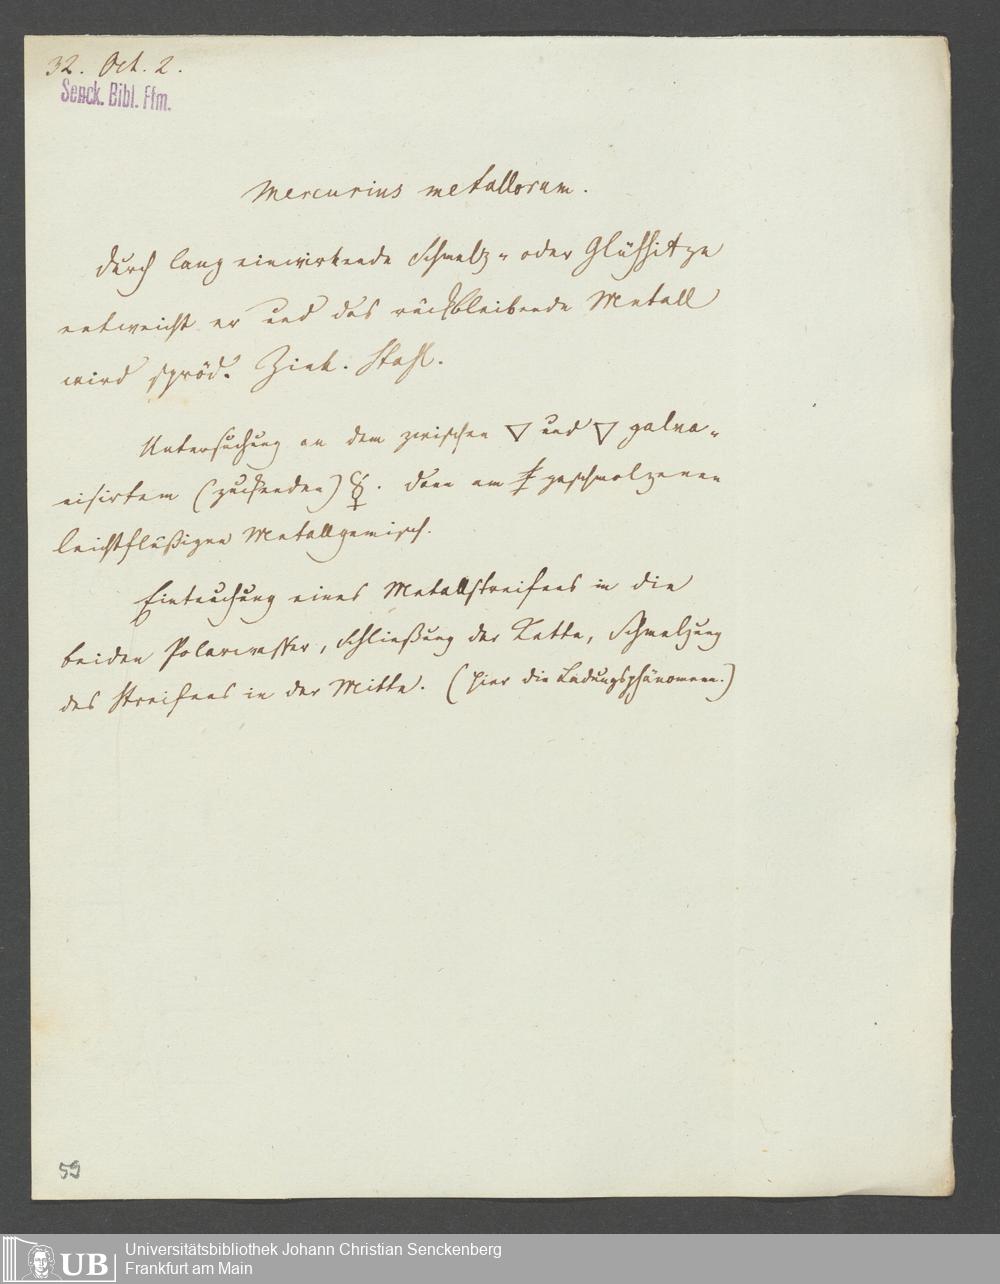 32. Oct. 2.
Senck. Bibl. Ffm.
Mercurius metallorum.
Durch lang einwirkende Schmelz- oder Glühhitze
entweicht er und das rückbleibende Metall
wird spröd. Zink. Stahl.
Untersuchung an dem zwischen ▽ und ▽ galva-
nisirtem (zuckenden) ☿. dann am geschmolzenen
leichtflüßigen Metallgemisch.
Eintauchung eines Metallstreifens in die
beiden Polarwasser, Schließung der Kette, Schmelzung
des Streifens in der Mitte. (hier die Ladungsphänomene.)
59
UB
Universitätsbibliothek Johann Christian Senckenberg
Frankfurt am Main